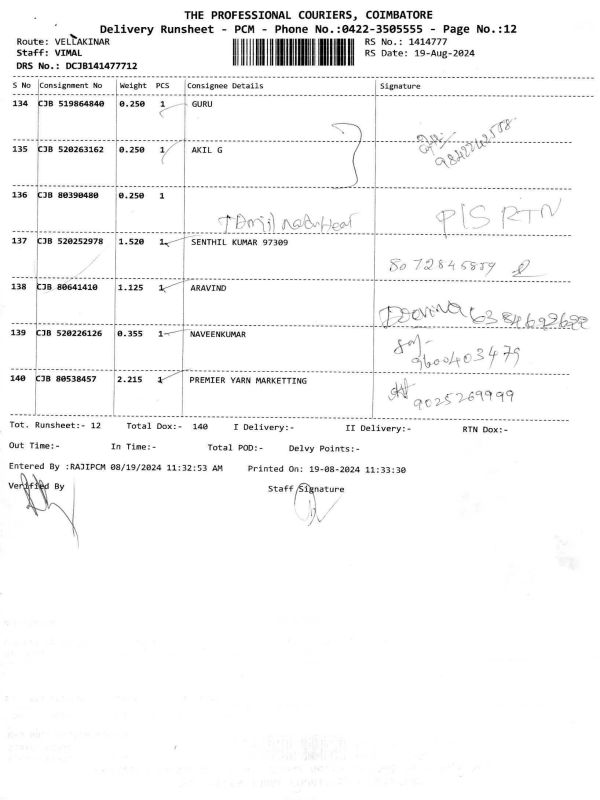 THE PROFESSIONAL COURIERS, COIMBATORE
Delivery Runsheet - PCM - Phone No.:0422-3505555 - Page No.:12
Route: VELLAKINAR
RS No.: 1414777
Staff: VIMAL
RS Date: 19-Aug-2024
DRS No.: DCJB141477712
S No Consignment No Weight PCS Consignee Details Signature
134 CJB 519864840 0.250 1 GURU
135 CJB 520263162 0.250 1 AKIL G
136 CJB 80390480 0.250 1
P/S RTN
137 CJB 520252978 1.520 1 SENTHIL KUMAR 97309
8072845859
138 CJB 80641410 1.125 1 ARAVIND
139 CJB 520226126 0.355 1 NAVEENKUMAR
9600403479
140 CJB 80538457 2.215 1 PREMIER YARN MARKETTING
9025269999
Tot. Runsheet:- 12 Total Dox:- 140 I Delivery:- II Delivery:- RTN Dox:-
Out Time:- In Time:- Total POD:- Delvy Points:-
Entered By :RAJIPCM 08/19/2024 11:32:53 AM Printed On: 19-08-2024 11:33:30
Verified By Staff Signature